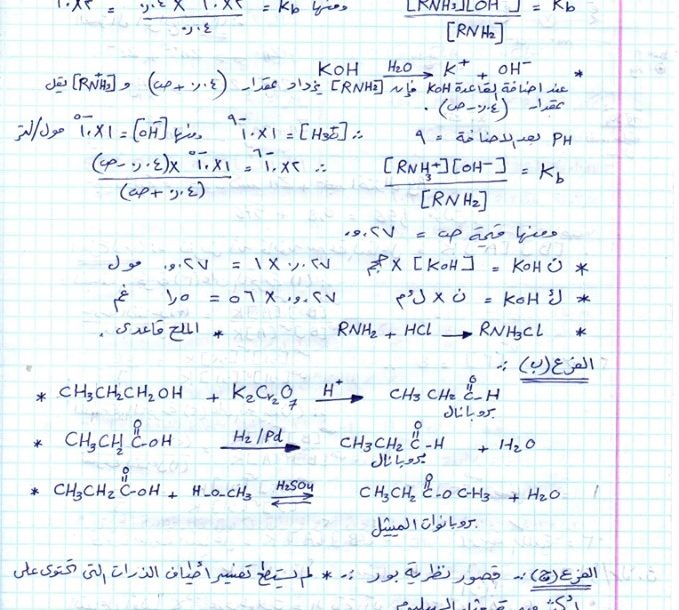 Kb = [RNH₃][OH⁻] / [RNH₂] ومنها Kb = ٢×١٠⁻ × ٠٫٤ / ٠٫٤
* KOH —H₂O→ K⁺ + OH⁻
عند اضافة القاعدة KOH فإن [RNH₂] يزداد بمقدار (٠٫٤ + ص) و [RNH₃⁺] يقل
بمقدار (٠٫٤ - ص).
PH بعد الاضافة = ٩ ∴ [H₃O⁺] = ١×١٠⁻⁹ ومنها [OH⁻] = ١×١٠⁻⁵ مول/لتر
Kb = [RNH₃⁺][OH⁻] / [RNH₂] ∴ ٢×١٠⁻⁶ = ١×١٠⁻⁵ × (٠٫٤ - ص) / (٠٫٤ + ص)
ومنها قيمة ص = ٠٫٢٧
* ن KOH = [KOH] × حجم ٠٫٢٧ × ١ = ٠٫٢٧ مول
* ك KOH = ن × ك م ٠٫٢٧ × ٥٦ = ١٥ غم
* RNH₂ + HCl → RNH₃Cl * الملح قاعدي.
الفرع (ب) :-
* CH₃CH₂CH₂OH + K₂Cr₂O₇ —H⁺→ CH₃CH₂C(=O)-H
بروبانال
* CH₃CH₂C(=O)-OH —H₂/Pd→ CH₃CH₂C(=O)-H + H₂O
بروبانال
* CH₃CH₂C(=O)-OH + H-O-CH₃ —H₂SO₄⇌ CH₃CH₂C(=O)-OCH₃ + H₂O
بروبانوات الميثيل
الفرع (ج) :- قصور نظرية بور :- * لم يستطع تفسير أطياف الذرات التي تحتوي على